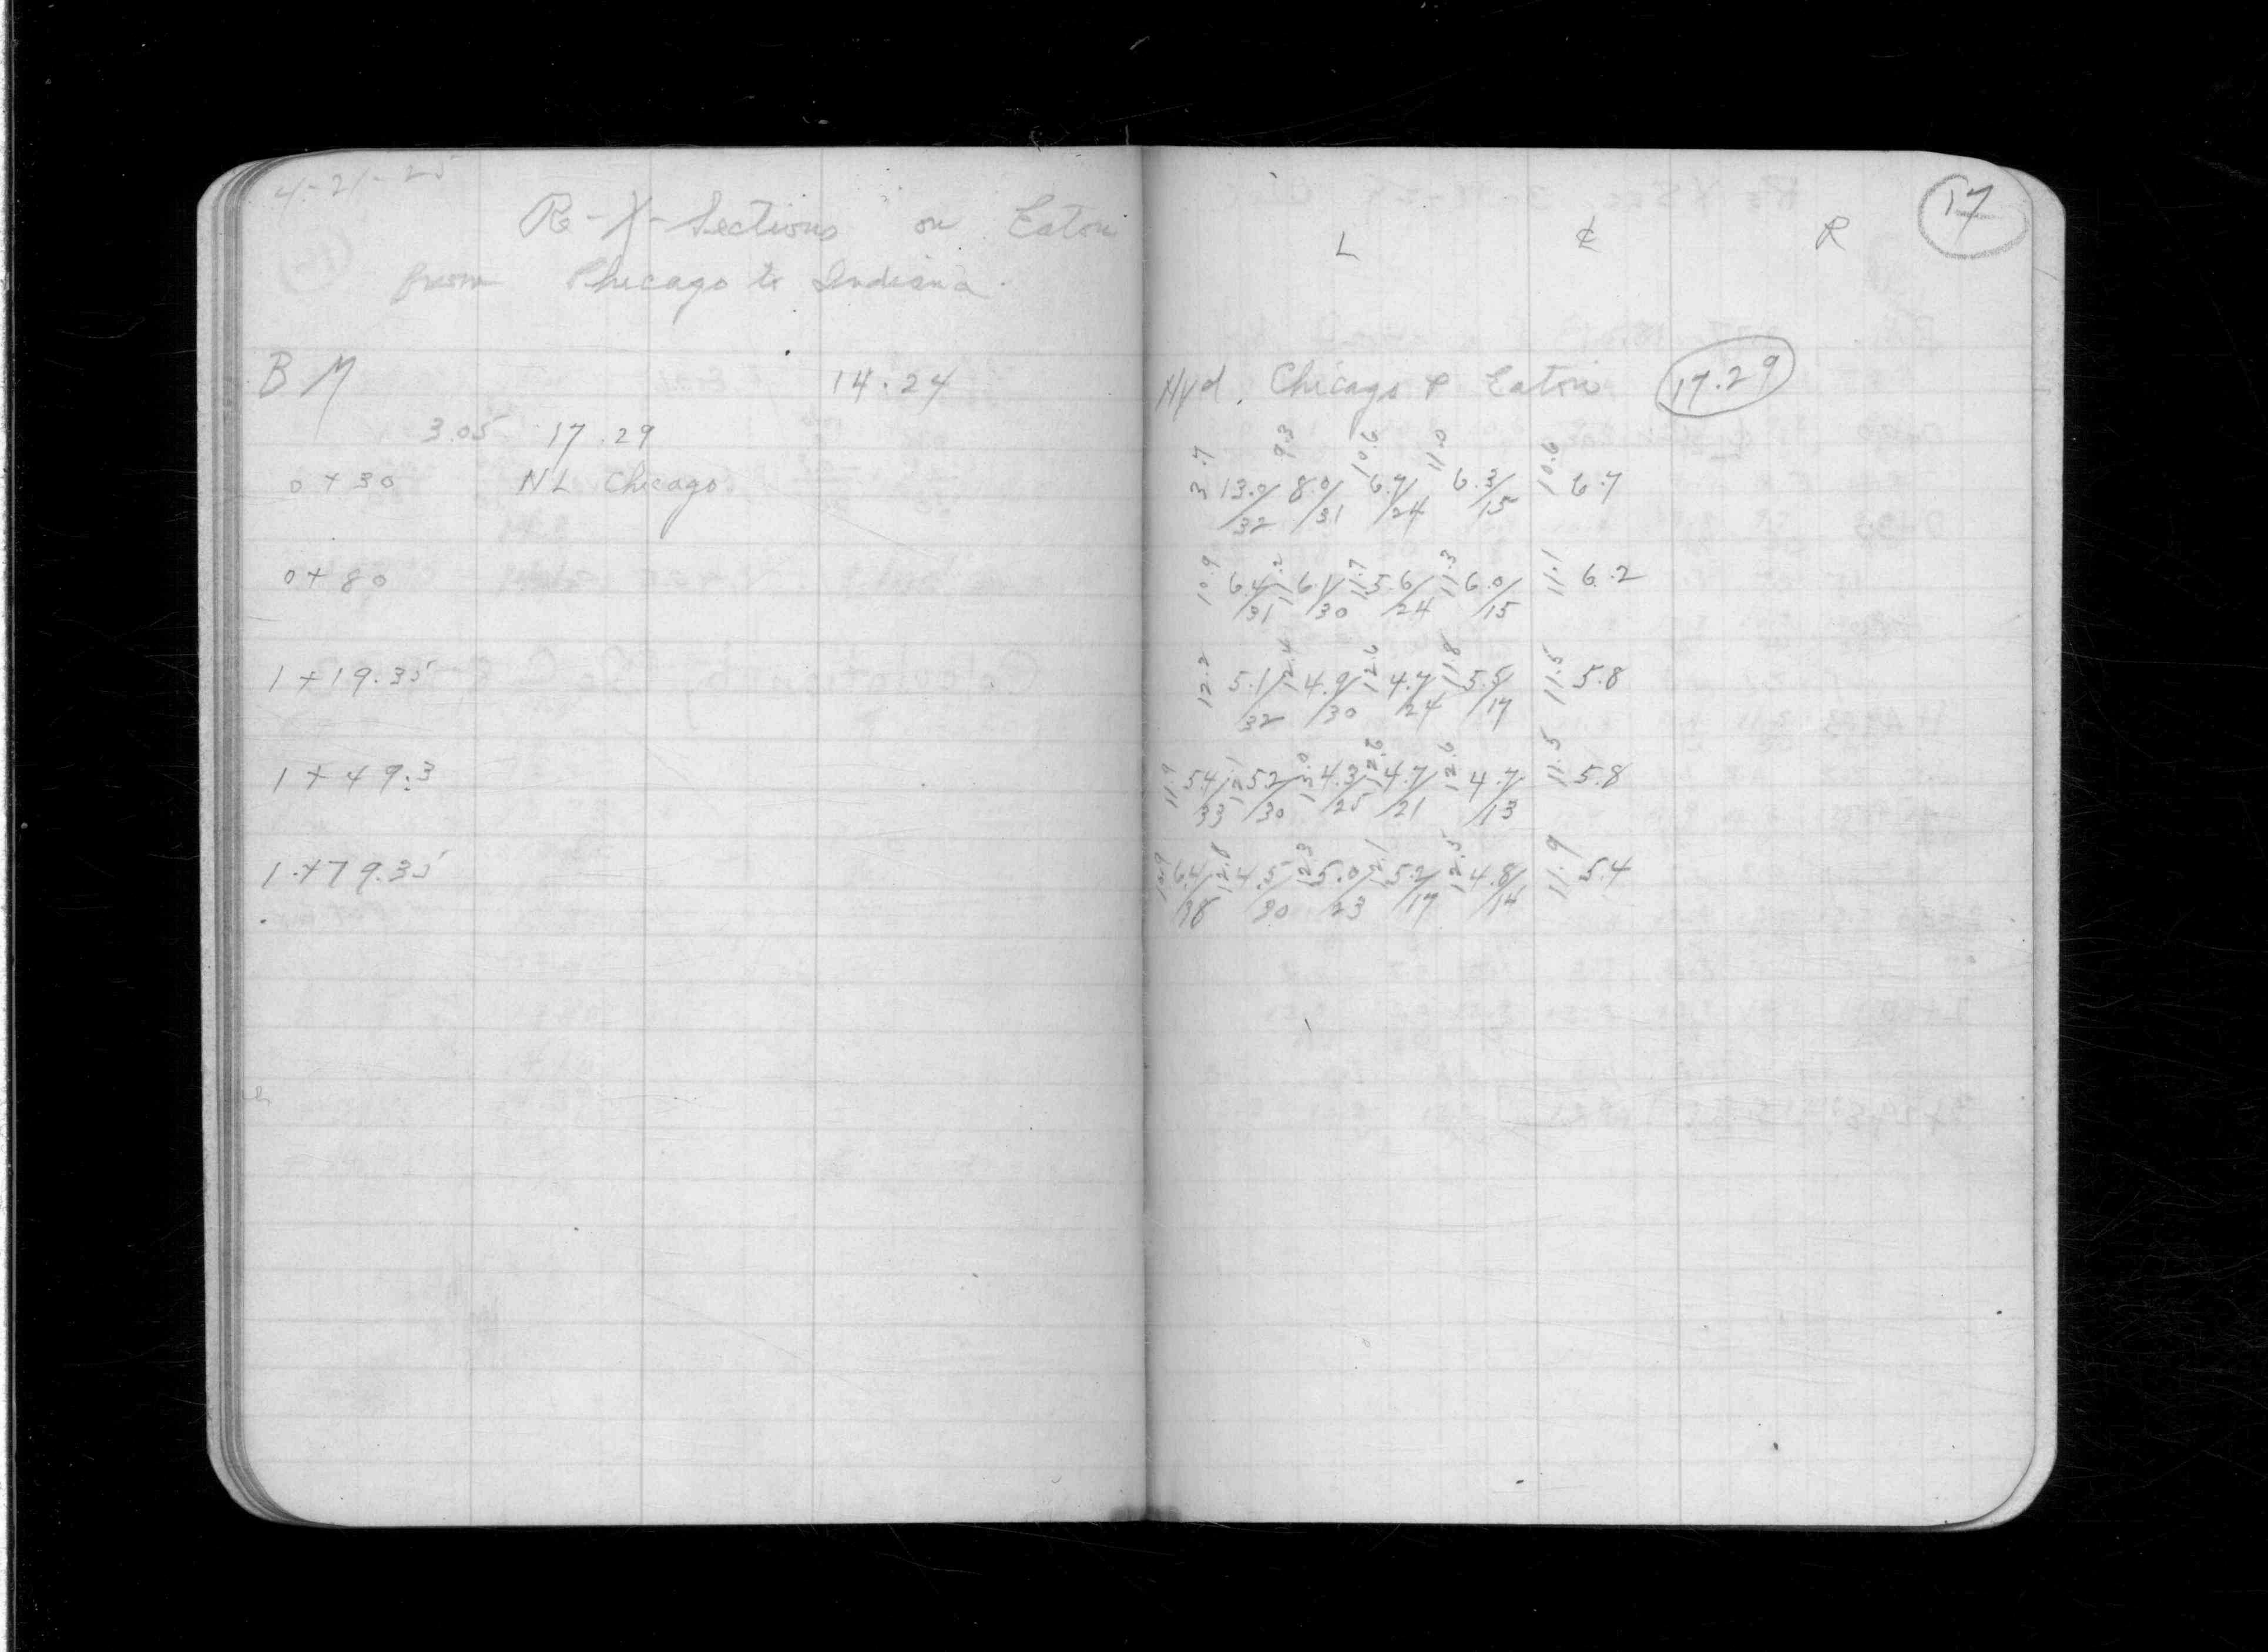 4-21-25
Re-X-Sections on Eaton
from Chicago to Indiana.
BM 14.24
3.05 17.29
0+30 NL Chicago
0+80
1+19.35
1+49.3
1+79.35
17
L ¢ R
Hyd. Chicago & Eaton 17.29
3.7 9.3 10.6 11.0 10.6
13.0/32 8.0/31 6.7/24 6.3/15 6.7
10.9 11.2 11.7 11.3 11.1
6.4/31 6.1/30 5.6/24 6.0/15 6.2
12.2 12.4 12.6 11.8 11.5
5.1/32 4.9/30 4.7/24 5.5/17 5.8
11.9 12.1 13.0 12.6 12.6 11.5
5.4/33 52/30 4.3/25 4.7/21 4.7/13 5.8
10.9 12.8 12.3 12.1 12.5 11.9
6.4/38 4.5/30 5.0/23 5.2/17 4.8/14 5.4